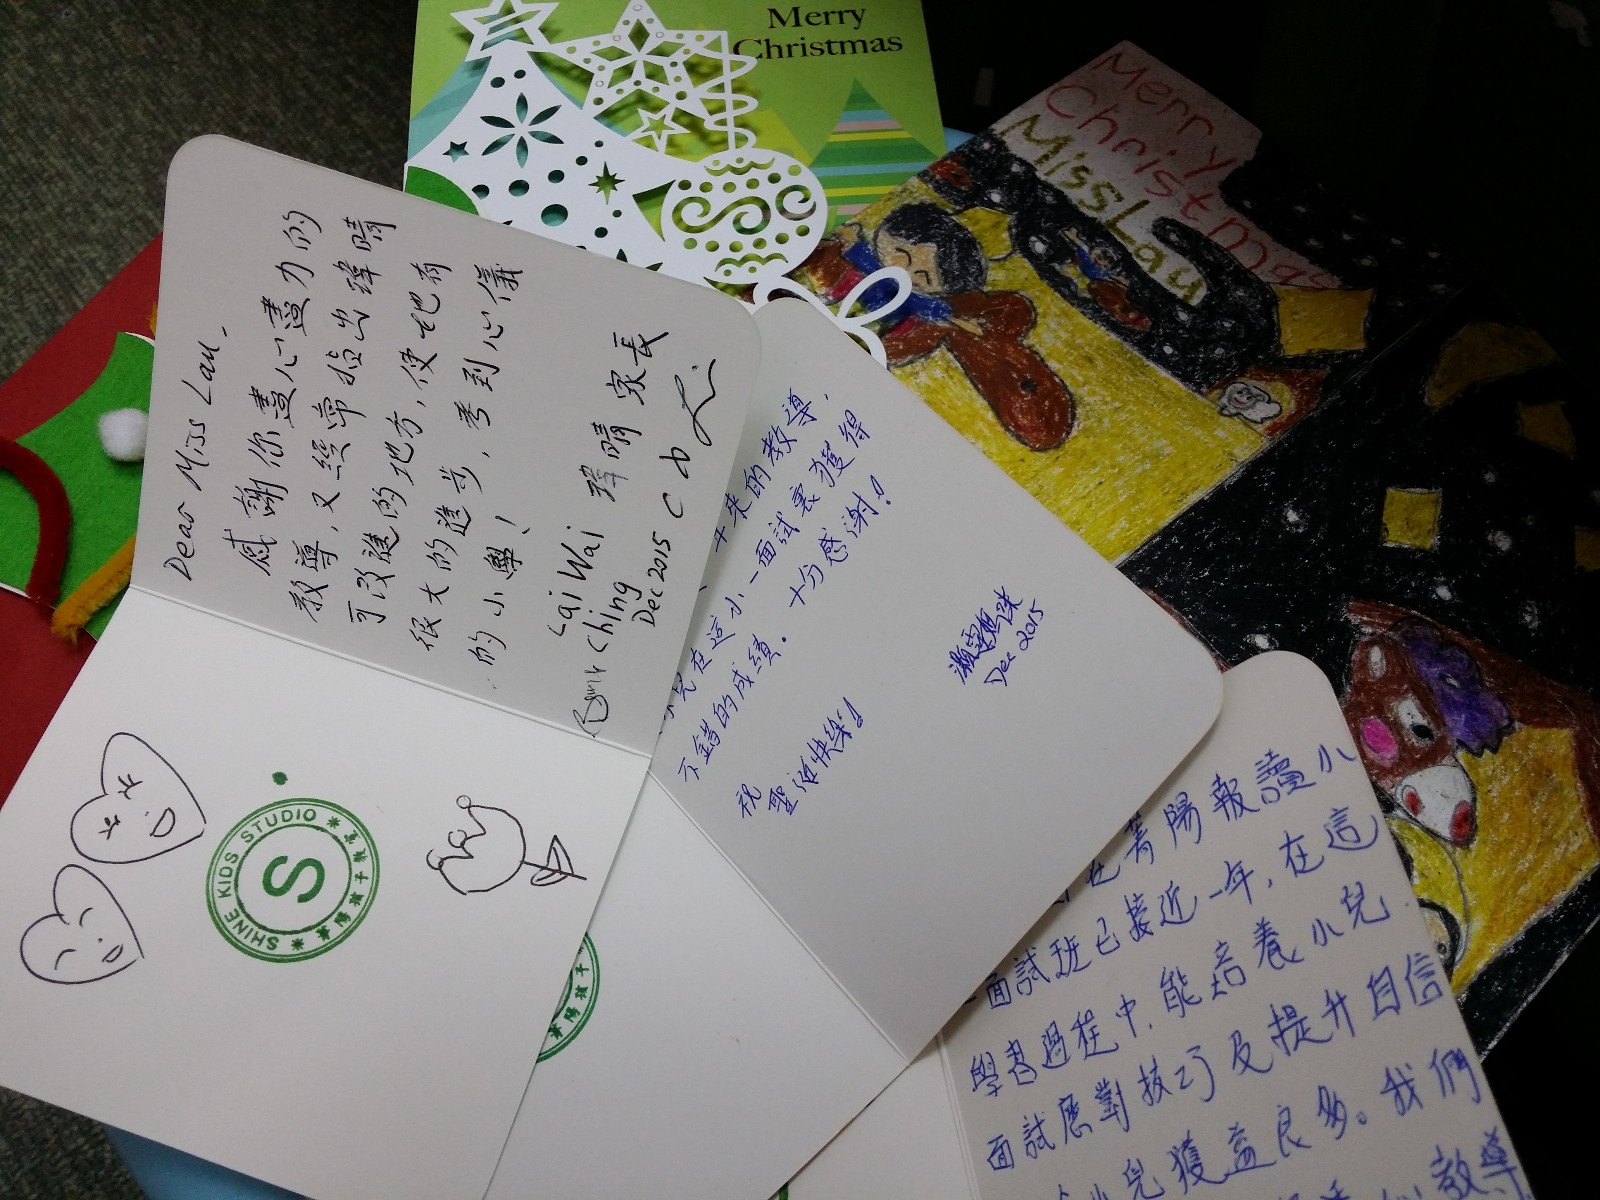 Merry
Christmas
Merry
Christmas
Miss Lau
Dear Miss Lau,
感謝你盡心盡力的
教導,又經常指出瑋晴
可改進的地方,使她有
很大的進步,考到心儀
的小學!
Lai Wai
Ching
瑋晴 家長
Dec 2015
年來的教導,
兒在這小一面試裏獲得
不錯的成績。十分感謝!
祝
聖誕快樂!
Dec 2015
在菁陽報讀小
面試班已接近一年,在這
學習過程中,能培養小兒
面試應對技巧及提升自信
小兒獲益良多。我們
教導
SHINE KIDS STUDIO
S
菁陽孩子教室
陽孩子